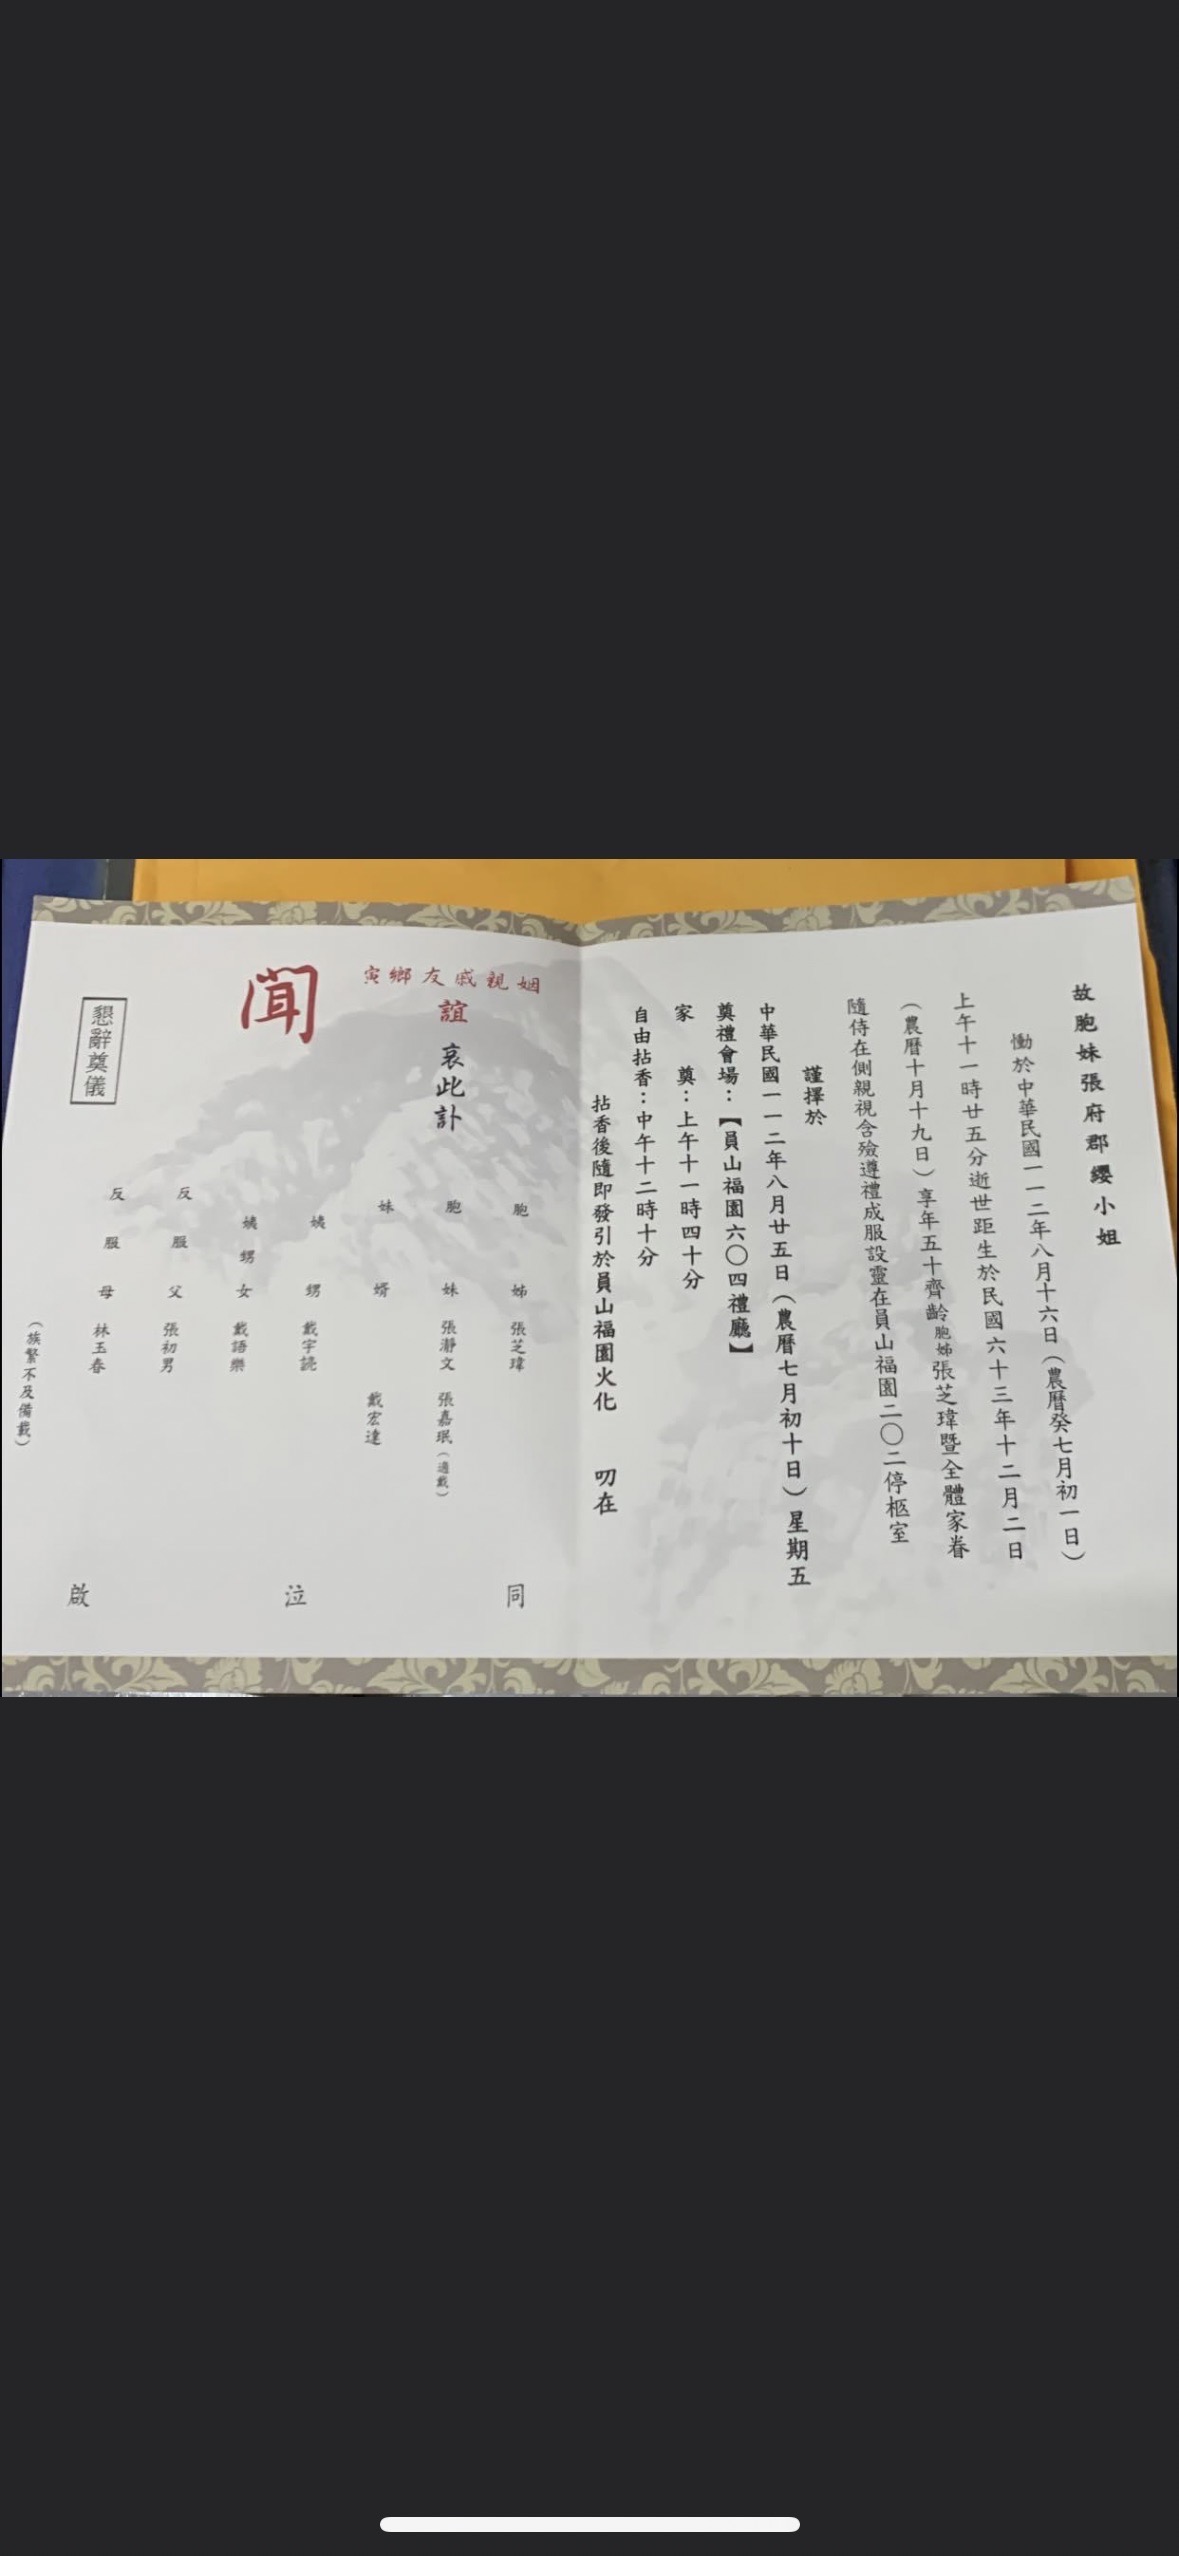 故胞妹張府郡纓小姐
慟於中華民國一一二年八月十六日（農曆癸七月初一日）
上午十一時廿五分逝世距生於民國六十三年十二月二日
（農曆十月十九日）享年五十齊齡胞姊張芝瑋暨全體家眷
隨侍在側親視含殮遵禮成服設靈在員山福園二〇二停柩室
謹擇於
中華民國一一二年八月廿五日（農曆七月初十日）星期五
奠禮會場：【員山福園六〇四禮廳】
家奠：上午十一時四十分
自由拈香：中午十二時十分
拈香後隨即發引於員山福園火化 叨在
姻親戚友鄉寅
誼 哀此訃
聞
懇辭奠儀
胞姊 張芝瑋
胞妹 張瀞文 張嘉珉（適戴）
妹婿 戴宏達
姨甥 戴宇
姨甥女 戴語樂
反服父 張初男
反服母 林玉春
（族繁不及備載）
同泣啟